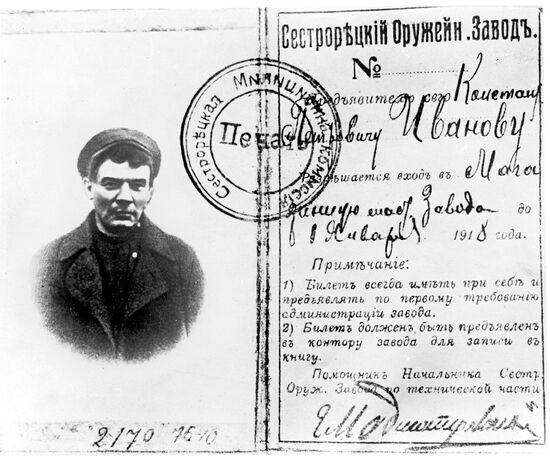 Сестрорѣцкій Оружейн. Заводъ.
№
Предъявителю сего Констант
Петровичу Иванову
Разрѣшается входъ въ Мага
зинную маст. Завода до
1 Января 1918 года.
Примѣчаніе:
1) Билетъ всегда имѣть при себѣ и
предъявлять по первому требованію
администраціи завода.
2) Билетъ долженъ быть предъявленъ
въ контору завода для записи въ
книгу.
Помощникъ Начальника Сестр.
Оруж. Завода по технической части
Сестрорѣцкая Милиціи
Печать
2170